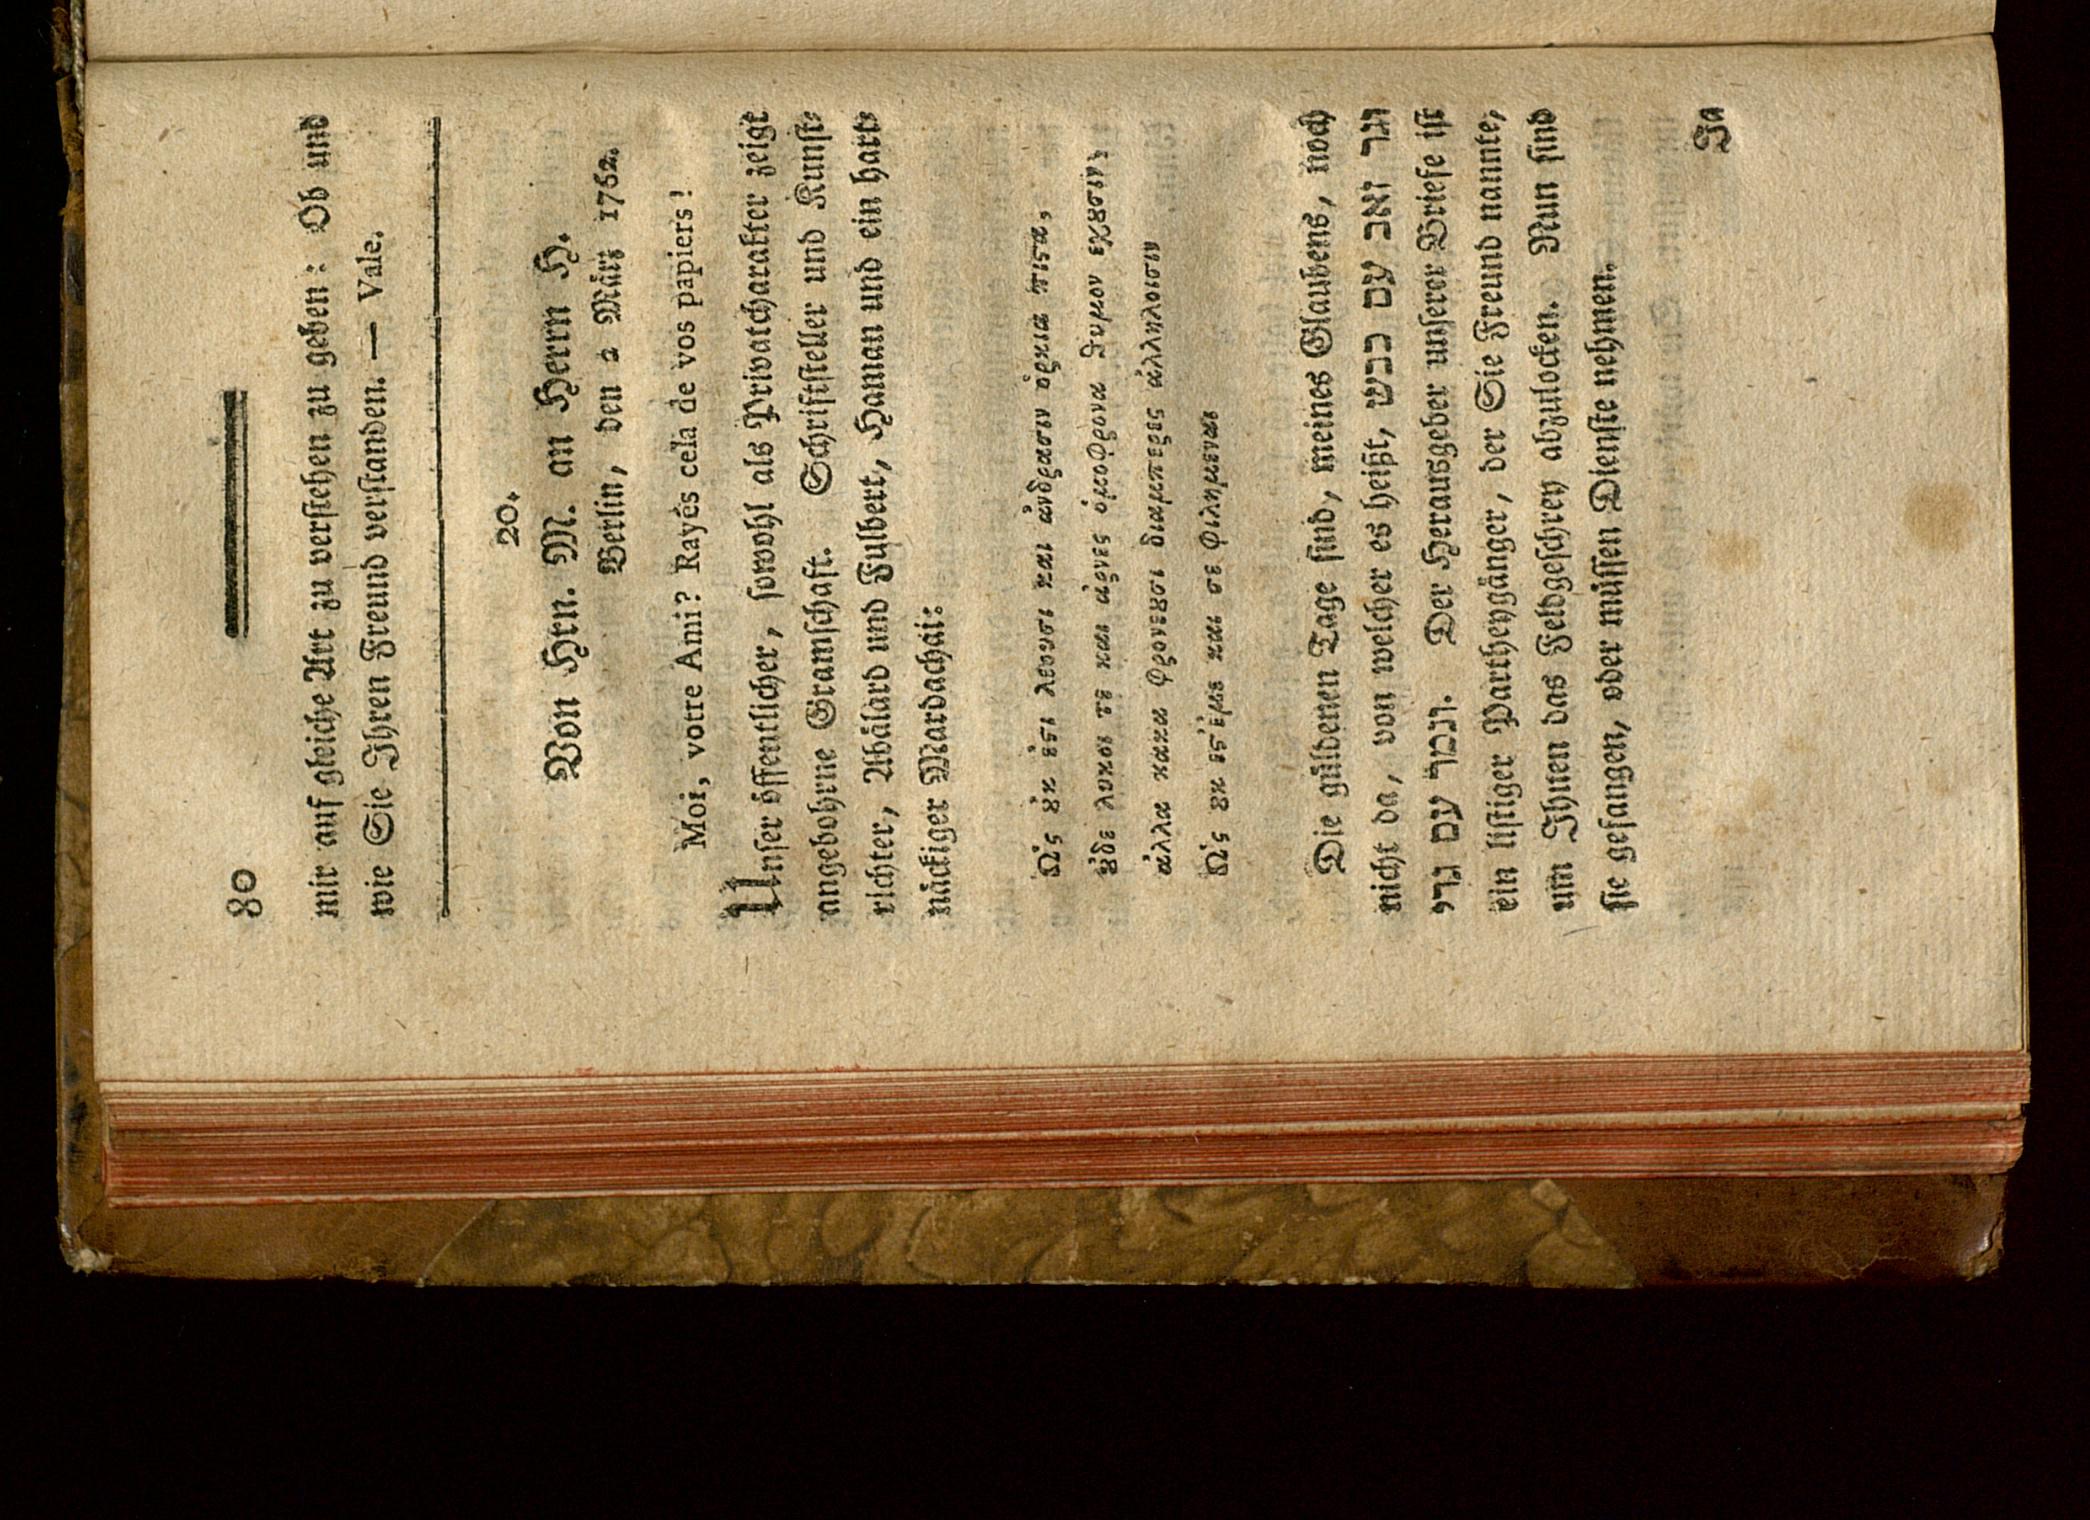 80
mir auf gleiche Art zu verstehen zu geben: Ob und
wie Sie Ihren Freund verstanden. — Vale.
20.
Von Hrn. M. an Herrn H.
Berlin, den 2 März 1762.
Moi, votre Ami? Rayés cela de vos papiers!
Unser öffentlicher, sowohl als Privatcharakter zeigt
angebohrne Gramschaft. Schriftsteller und Kunst-
richter, Abälard und Fulbert, Haman und ein hart-
näckiger Mardachai:
Ὡς ȣ̓κ ἐϛι λεουσι και ἀνδρασιν ὁρκια πιϛα,
ȣ̓δε λυκοι τε και ἀρνες ὁμοφρονα θυμον ἐχȣσιν
ἀλλα κακα φρονεȣσι διαμπερες ἀλληλοισιν
Ὡς ȣκ εϛ' ἐμε και σε φιλημεναι.
Die güldenen Tage sind, meines Glaubens, noch
nicht da, von welcher es heißt, וגר זאב עם כבש
ונמר עם גדי. Der Herausgeber unserer Briefe ist
ein listiger Partheygänger, der Sie Freund nannte,
um Ihnen das Feldgeschrey abzulocken. Nun sind
Sie gefangen, oder müssen Dienste nehmen.
Ja